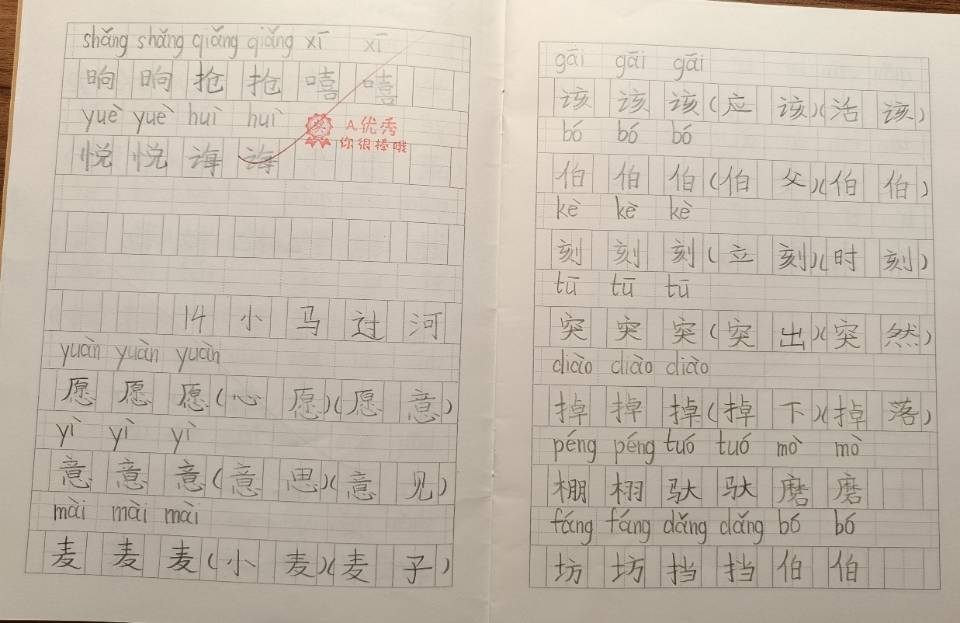 shǎng shǎng qiǎng qiǎng xī xī
晌 晌 抢 抢 嘻 嘻
yuè yuè huì huì
悦 悦 诲 诲
A.优秀
你很棒哦
14 小 马 过 河
yuàn yuàn yuàn
愿 愿 愿(心 愿)(愿 意)
yì yì yì
意 意 意(意 思)(意 见)
mài mài mài
麦 麦 麦(小 麦)(麦 子)
gāi gāi gāi
该 该 该(应 该)(活 该)
bó bó bó
伯 伯 伯(伯 父)(伯 伯)
kè kè kè
刻 刻 刻(立 刻)(时 刻)
tū tū tū
突 突 突(突 出)(突 然)
diào diào diào
掉 掉 掉(掉 下)(掉 落)
péng péng tuó tuó mò mò
棚 棚 驮 驮 磨 磨
fáng fáng dǎng dǎng bó bó
坊 坊 挡 挡 伯 伯